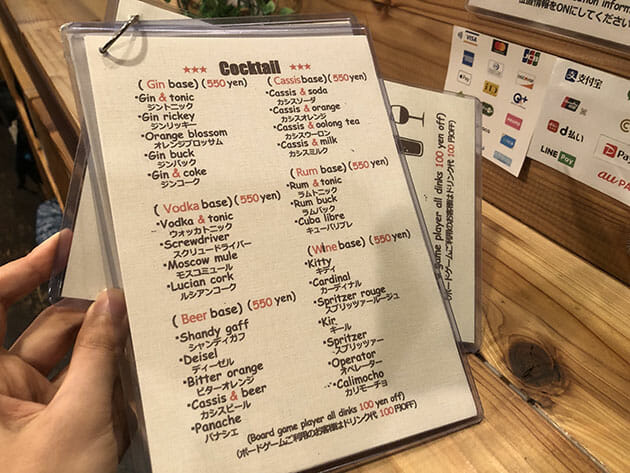 ★★★ Cocktail ★★★
( Gin base) (550 yen)
•Gin & tonic
ジントニック
•Gin rickey
ジンリッキー
•Orange blossom
オレンジブロッサム
•Gin buck
ジンバック
•Gin & coke
ジンコーク
(Vodka base) (550 yen)
•Vodka & tonic
ウォッカトニック
•Screwdriver
スクリュードライバー
•Moscow mule
モスコミュール
•Lucian cork
ルシアンコーク
( Beer base) (550 yen)
•Shandy gaff
シャンディガフ
•Deisel
ディーゼル
•Bitter orange
ビターオレンジ
•Cassis & beer
カシスビール
•Panache
パナシェ
( Cassis base) (550 yen)
•Cassis & soda
カシスソーダ
•Cassis & orange
カシスオレンジ
•Cassis & oolong tea
カシスウーロン
•Cassis & milk
カシスミルク
( Rum base) (550 yen)
•Rum & tonic
ラムトニック
•Rum buck
ラムバック
•Cuba libre
キューバリブレ
(Wine base) (550 yen)
•Kitty
キティ
•Cardinal
カーディナル
•Spritzer rouge
スプリッツァールージュ
•Kir
キール
•Spritzer
スプリッツァー
•Operator
オペレーター
•Calimocho
カリモーチョ
(Board game player all dinks 100 yen off)
(ボードゲームご利用のお客様はドリンク代 100円OFF)
game player all dinks 100 yen off)
(ボードゲームご利用のお客様はドリンク代 100円OFF)
VISA
JCB
Pay
iD
支付宝
d払い
LINE Pay
au PA
位置情報をONにしてくださ